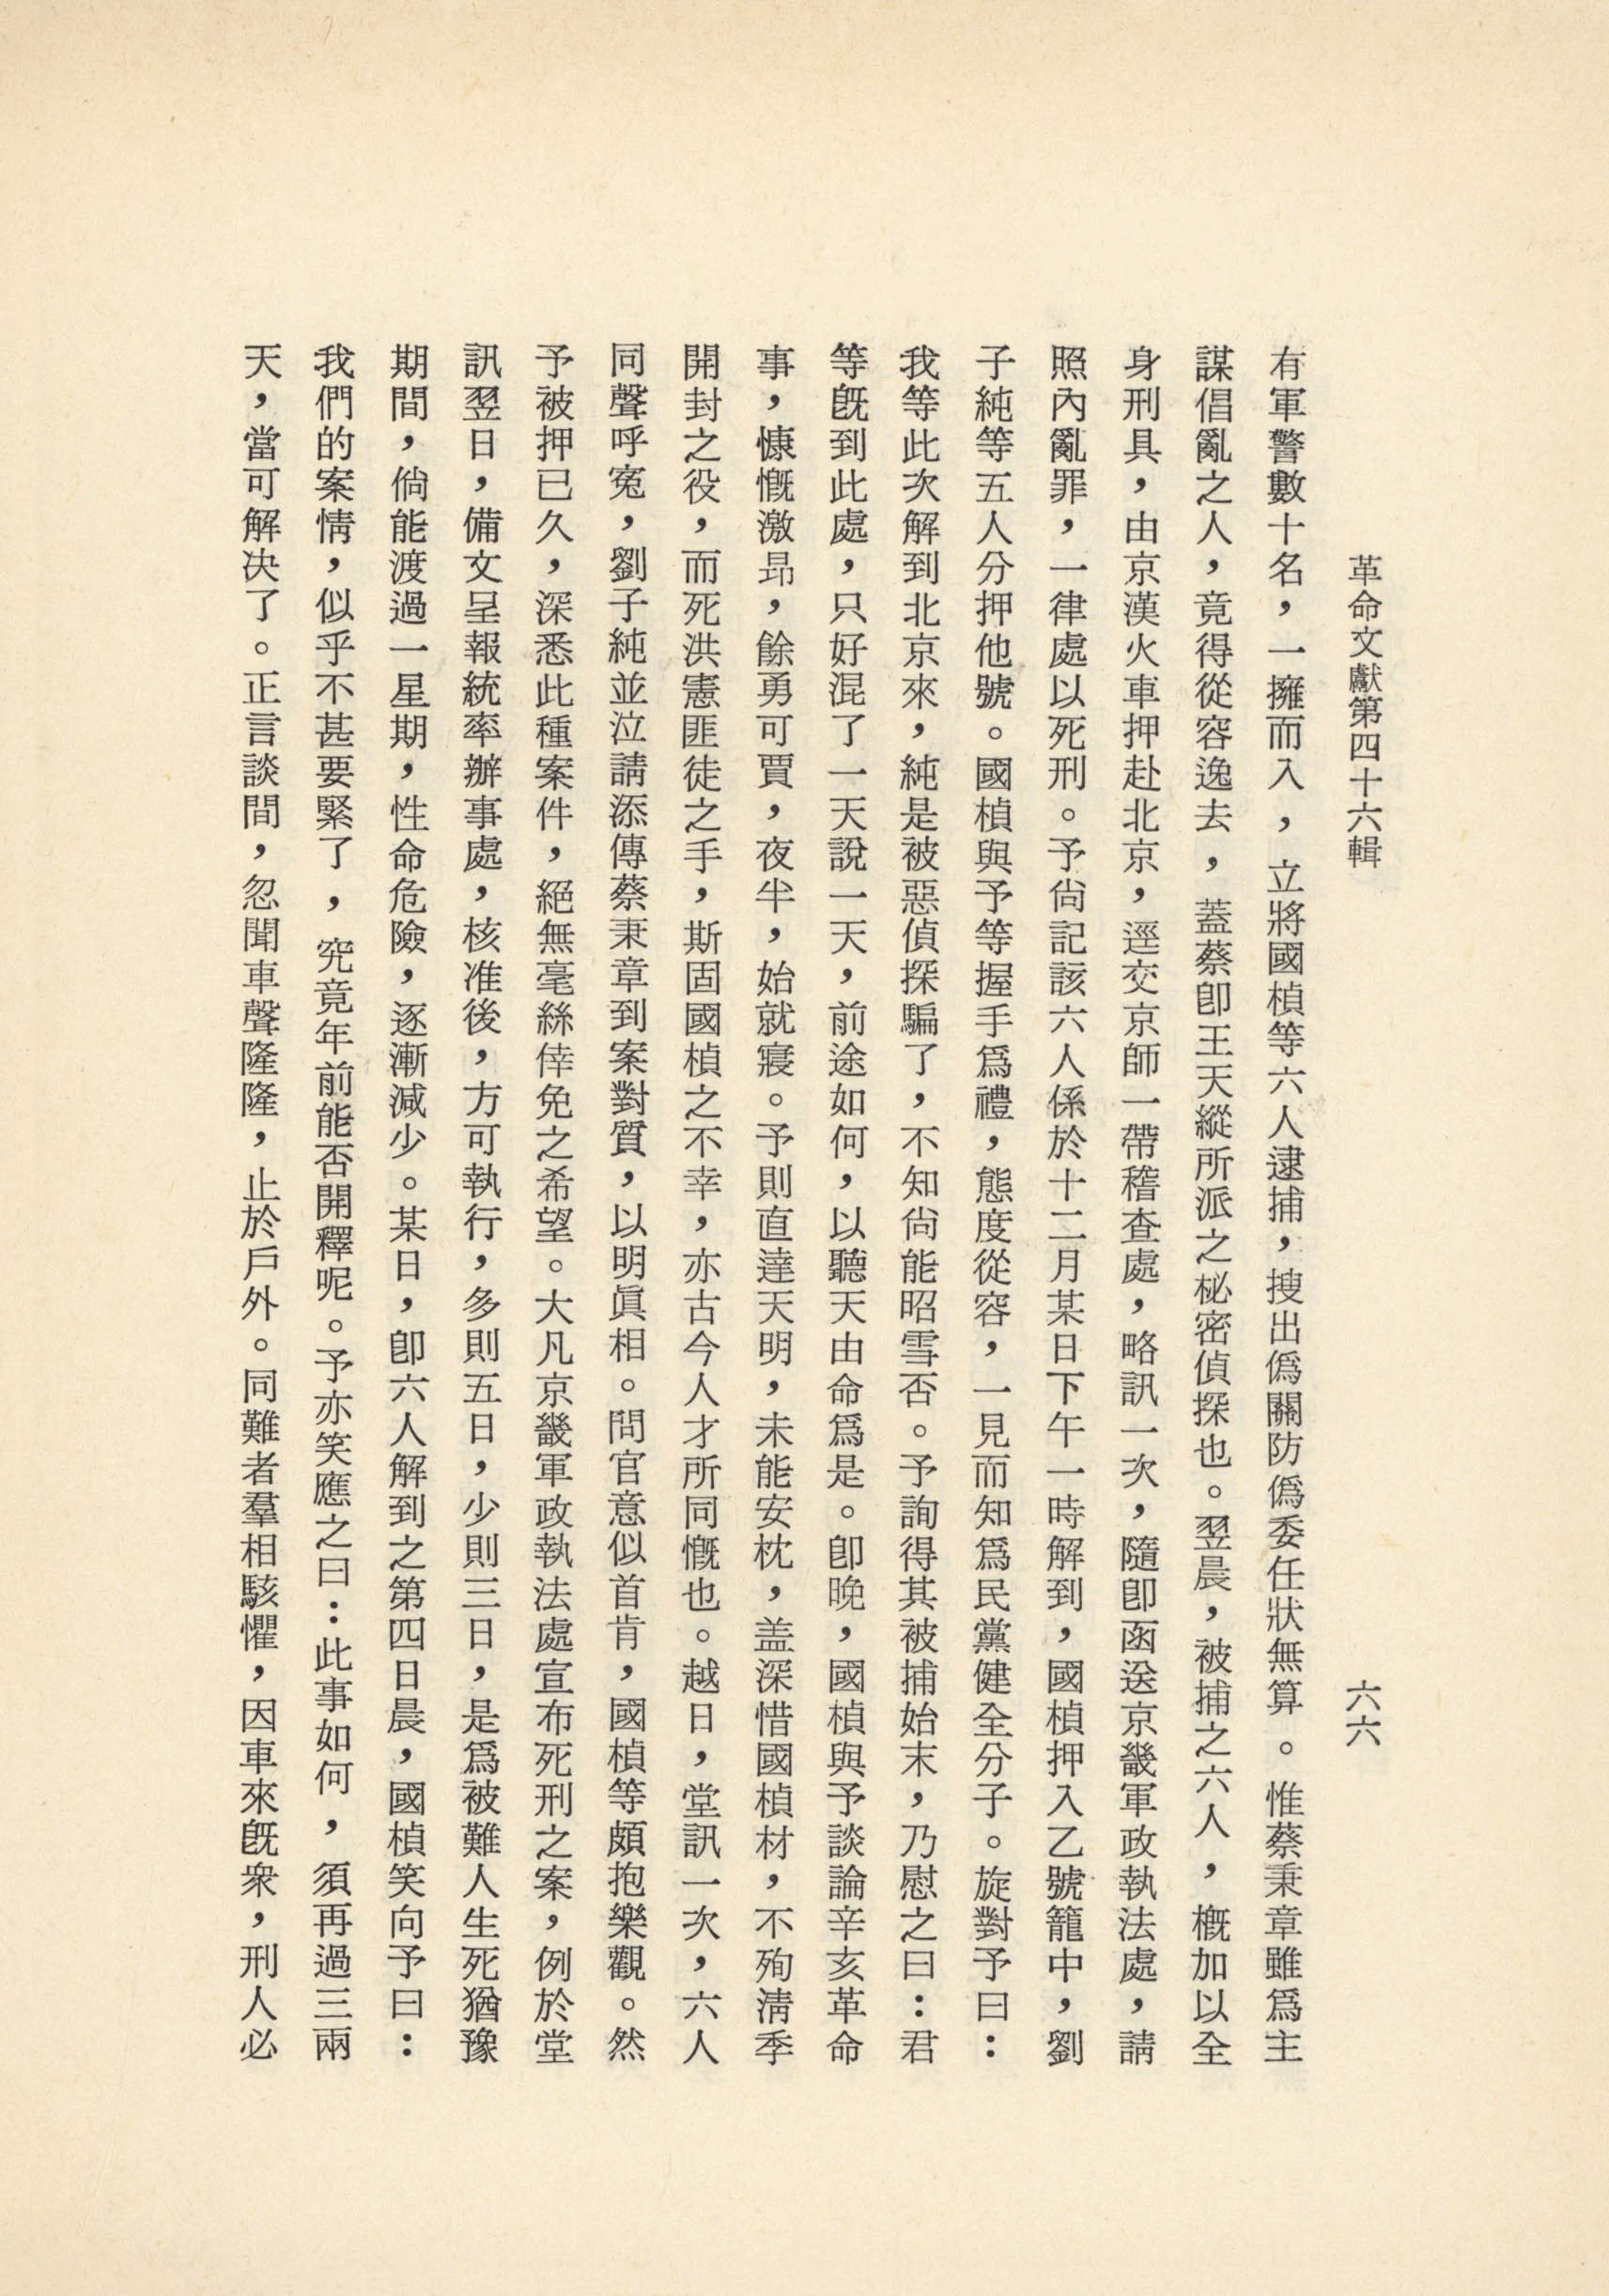 革命文獻第四十六輯
六六
有軍警數十名，一擁而入，立將國楨等六人逮捕，搜出僞關防僞委任狀無算。惟蔡秉章雖爲主
謀倡亂之人，竟得從容逸去，蓋蔡卽王天縱所派之秘密偵探也。翌晨，被捕之六人，概加以全
身刑具，由京漢火車押赴北京，逕交京師一帶稽查處，略訊一次，隨卽函送京畿軍政執法處，請
照內亂罪，一律處以死刑。予尙記該六人係於十二月某日下午一時解到，國楨押入乙號籠中，劉
子純等五人分押他號。國楨與予等握手爲禮，態度從容，一見而知爲民黨健全分子。旋對予曰：
我等此次解到北京來，純是被惡偵探騙了，不知尙能昭雪否。予詢得其被捕始末，乃慰之曰：君
等旣到此處，只好混了一天說一天，前途如何，以聽天由命爲是。卽晚，國楨與予談論辛亥革命
事，慷慨激昂，餘勇可賈，夜半，始就寢。予則直達天明，未能安枕，盖深惜國楨材，不殉淸季
開封之役，而死洪憲匪徒之手，斯固國楨之不幸，亦古今人才所同慨也。越日，堂訊一次，六人
同聲呼寃，劉子純並泣請添傳蔡秉章到案對質，以明眞相。問官意似首肯，國楨等頗抱樂觀。然
予被押已久，深悉此種案件，絕無毫絲倖免之希望。大凡京畿軍政執法處宣布死刑之案，例於堂
訊翌日，備文呈報統率辦事處，核准後，方可執行，多則五日，少則三日，是爲被難人生死猶豫
期間，倘能渡過一星期，性命危險，逐漸減少。某日，卽六人解到之第四日晨，國楨笑向予曰：
我們的案情，似乎不甚要緊了，究竟年前能否開釋呢。予亦笑應之曰：此事如何，須再過三兩
天，當可解决了。正言談間，忽聞車聲隆隆，止於戶外。同難者羣相駭懼，因車來旣衆，刑人必